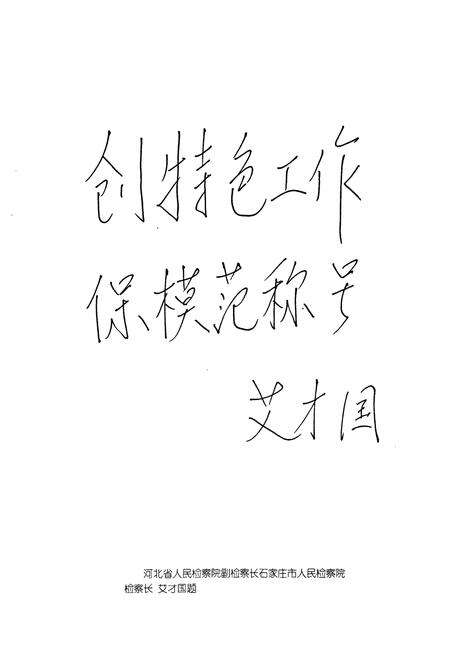 创特色工作
保模范称号
艾才国
河北省人民检察院副检察长石家庄市人民检察院
检察长 艾才国题